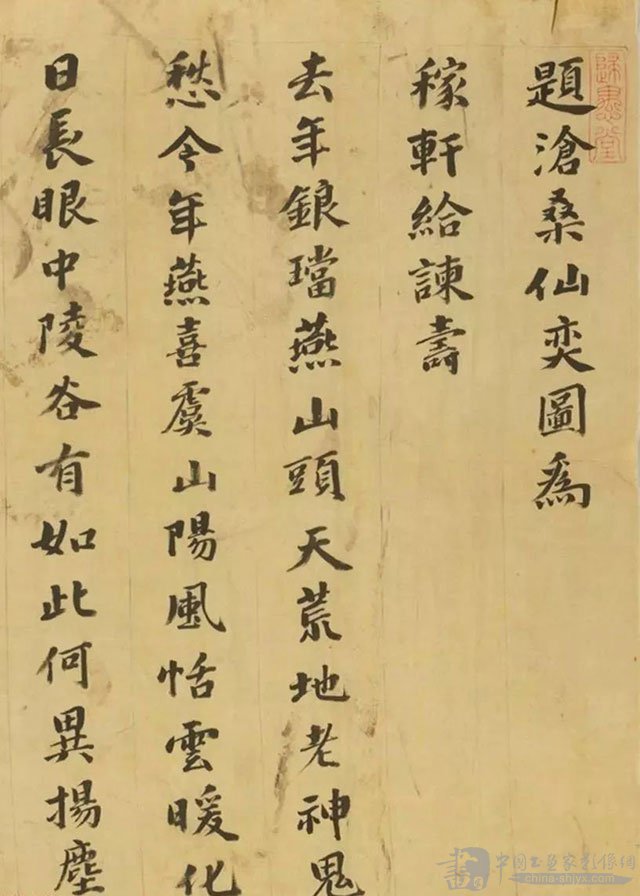 題滄桑仙奕圖為
稼軒給諫壽
去年鋃璫燕山頭天荒地老神鬼
愁今年燕喜虞山陽風恬雲暖化
日長眼中陵谷有如此何異揚塵
中国书画家影像网
china-shjyx.com